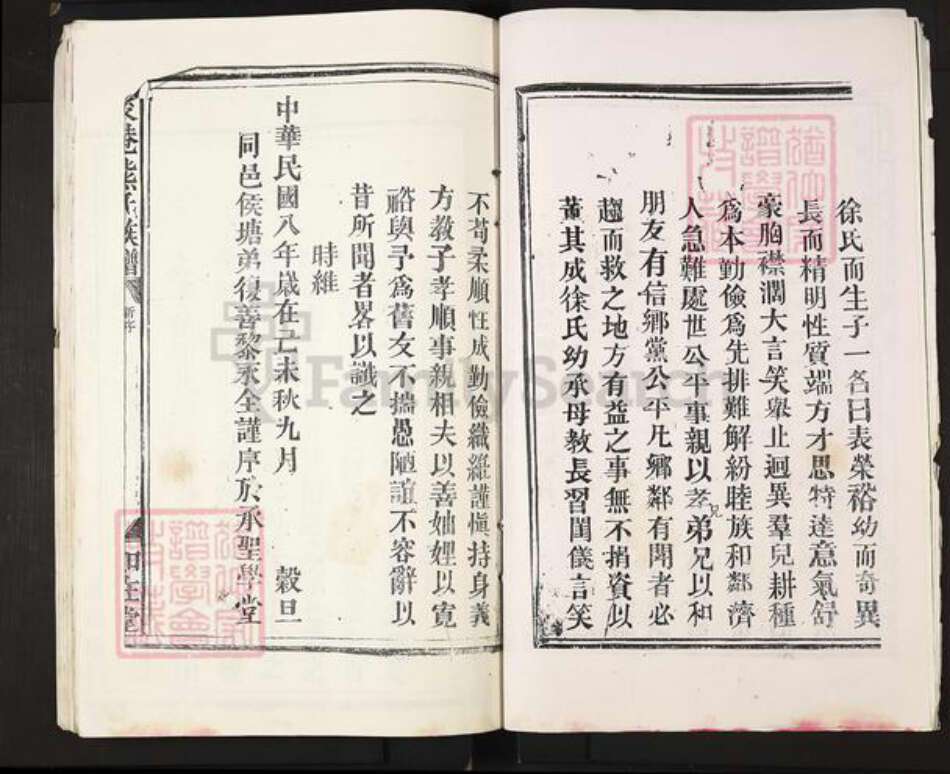 徐氏而生子一名曰表榮裕幼而奇異
長而精明性質端方才思特達意氣舒
豪胸襟濶大言笑舉止迥異羣兒耕種
爲本勤儉爲先排難解紛睦族和鄰濟
人急難處世公平事親以孝弟兄以和
朋友有信鄉黨公平凡鄉鄰有鬧者必
趨而救之地方有益之事無不捐資以
董其成徐氏幼承母教長習閨儀言笑
不苟柔順性成勤儉纖維謹愼持身義
方教子孝順事親相夫以善妯娌以寬
裕與予爲舊友不揣愚陋誼不容辭以
昔所聞者畧以識之
時維
中華民國八年歲在己未秋九月 穀旦
同邑侯塘弟復善黎永全謹序於承聖學堂
熊氏族譜 新序
FamilySearch
譜學會
譜學會